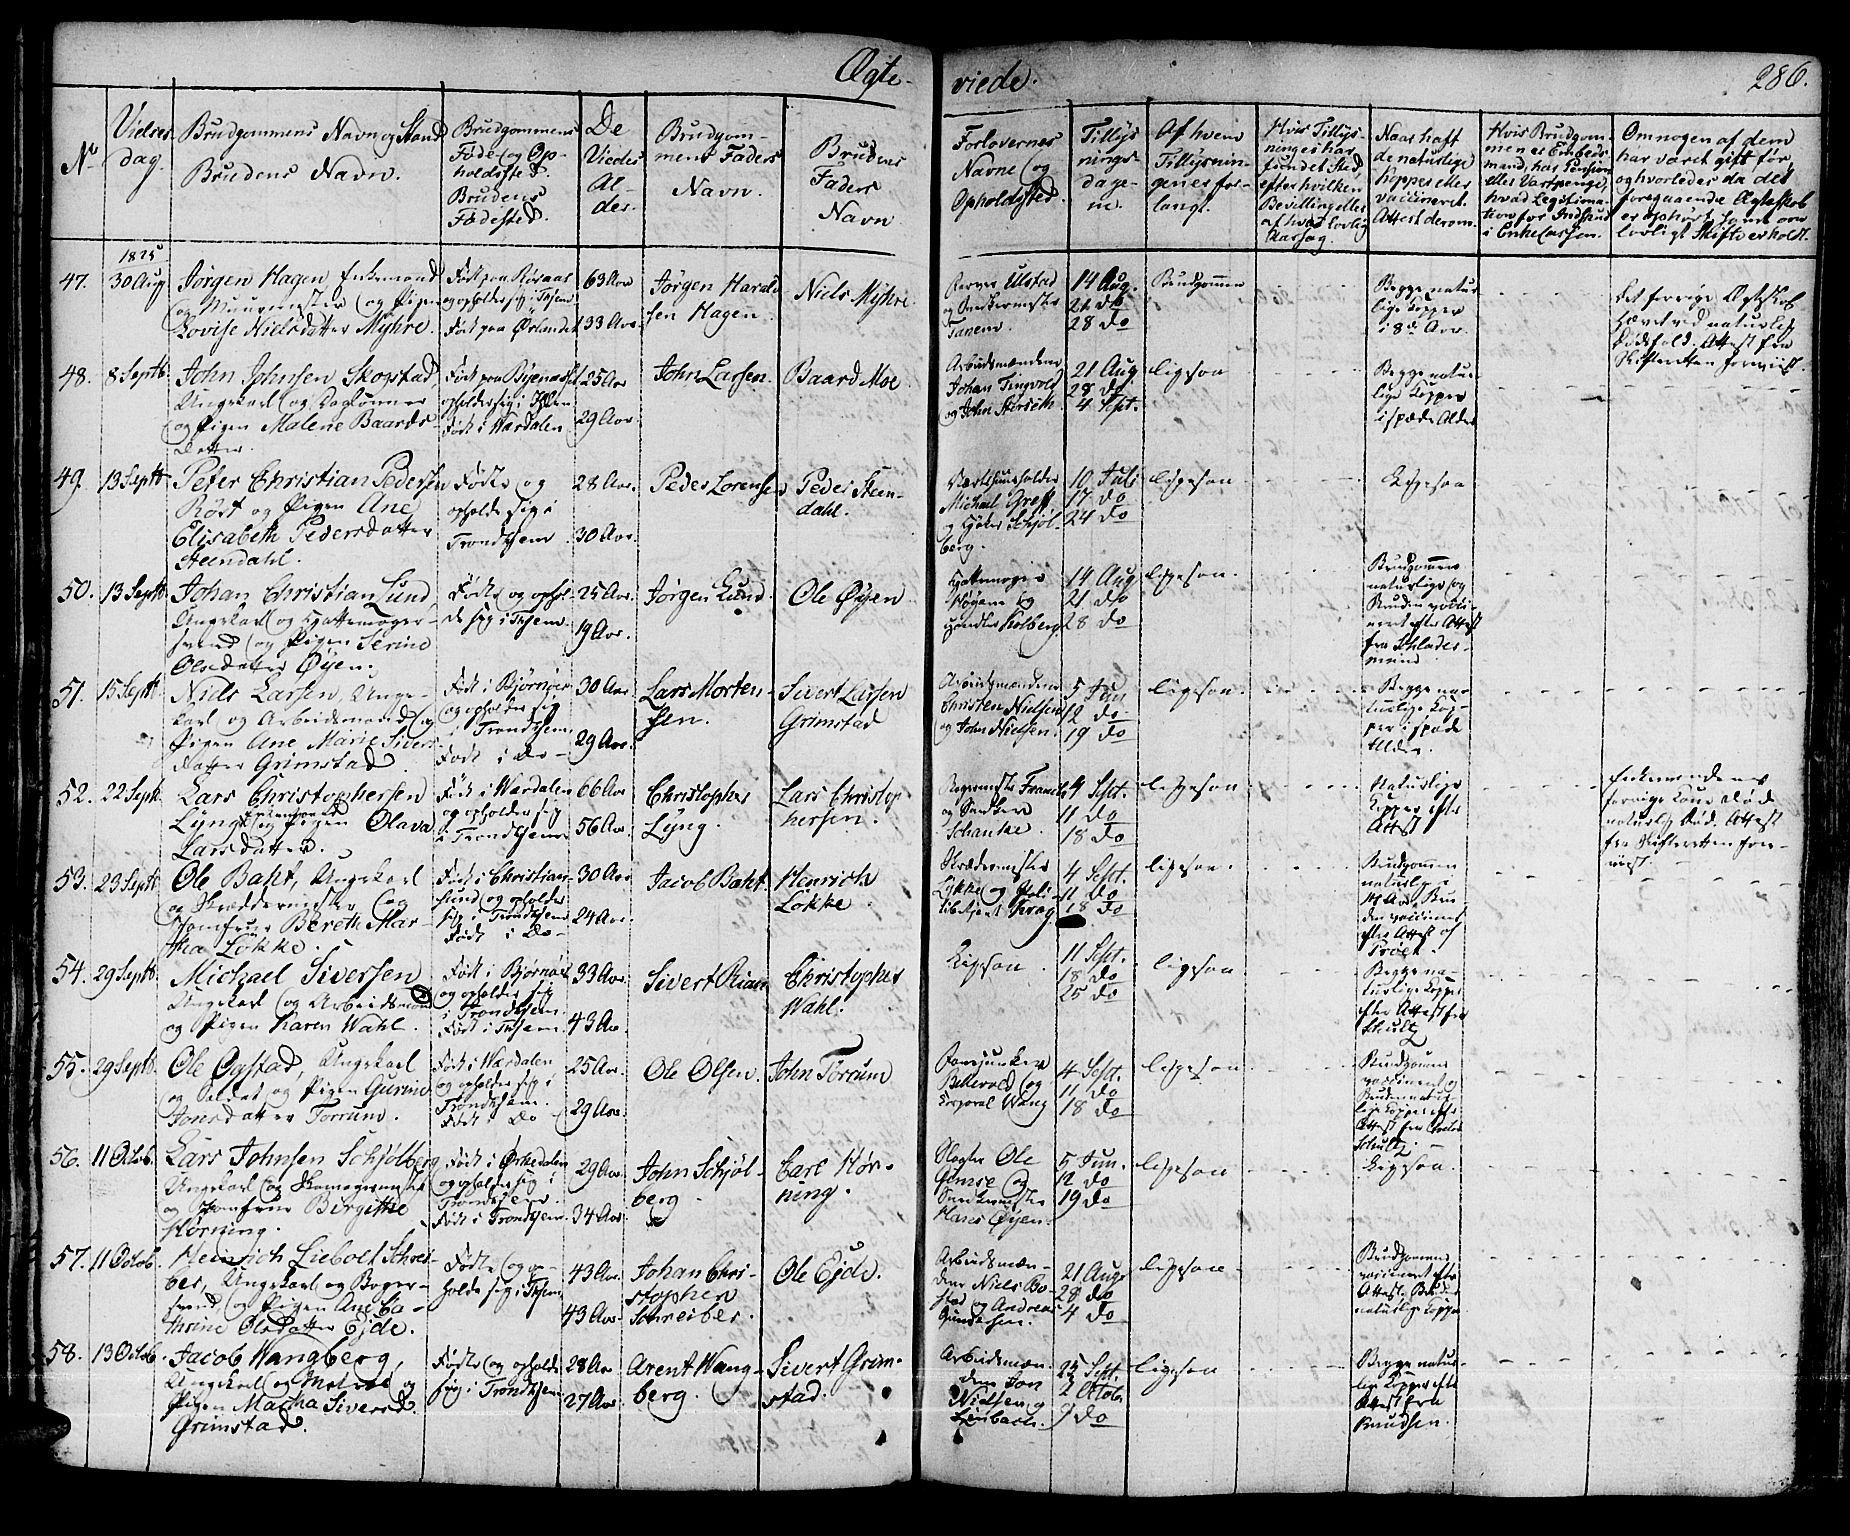 Ægte-
viede.
286.
No
Vielses
dag.
Brudgommens Navn og Stand
Brudens Navn.
Brudgommens
Føde- og Op-
holdssted.
Brudens
Fødested.
De
Viedes
Al-
der.
Brudgom-
mens Faders
Navn.
Brudens
Faders
Navn
Forlovernes
Navne og
Opholdsted.
Tillys
nings-
dage-
ne.
Af hvem
Tillysnin-
gen er for-
langt.
Hvis Tillys-
ning ei har
fundet Sted,
efter hvilken
Bevilling eller
af hvad lovlig
Aarsag.
Naar haft
de naturlige
Kopper eller
vaccineret.
Attest derom.
Hvis Brudgom-
men er Embeds-
mand, har Pension
eller Vartpenge,
hvad Legitima-
tion for Indskud
i Enkecassen.
Om nogen af dem
har været gift før,
og hvorledes da det
foregaaende Ægteskab
er ophørt, samt om
lovligt Skifte er holdt.
1825
47.
30 Aug
Jørgen Hagen, Enkemand
og Muurmester og Pigen
Lovise Nielsdatter Myhre.
Født paa Røraas
og opholder sig i Thjem
Født paa Ørlandet
63 Aar
33 Aar.
Jørgen Harald
sen Hagen.
Niels Myhre.
Ulstad
Tanem.
14 Aug.
21 do
28 do
Brudgommen
Begge natur
lige Kopper
i 8de Aar.
Det forrige Ægteskab
hævet ved naturlig
Dødsfald. Attest fra
Skifteretten foreviist.
48.
8 Septb.
John Johnsen Skogstad
Ungkarl og Dagлønner
og Pigen Malene Baards-
datter.
Født paa Byenæsset
opholder sig i Thjem
Født i Værdalen
25 Aar
29 Aar.
John Larsen.
Baard Moe
Arbeidsmændene
Johan Tingvold
og John
21 Aug
28 do
4 Sept.
ligesaa
Begge natur
lige Kopper
i spæde Alder
49.
13 Septb.
Peter Christian Pedersen
Røst og Pigen Ane
Elisabeth Pedersdatter
Steendahl.
Fødte og
opholde sig i
Trondhjem
28 Aar.
30 Aar.
Peder Lorensen
Peder Steen-
dahl.
Værtshuusholder
Michael Greff
og Schjøl-
berg.
10 Juli
17 do
24 do
ligesaa
Ligesaa
50.
13 Septb.
Johan Christian Lund,
Ungkarl og Hattemager-
svend og Pigen Serine
Olsdatter Øyen.
Fødte og ophol-
de sig i Thjem.
25 Aar.
19 Aar.
Jørgen Lund.
Ole Øyen
Hattemager
Høyem og
Holberg
14 Aug
21 do
28 do
ligesaa.
Brudgommen
naturlige og
Bruden vacci-
neret efter Attest
fra
51.
15 Septb.
Niels Larsen, Unge-
karl og Arbeidsmand og
Pigen Ane Marie Sivers
datter Grimstad
Født i Bjørnør
og opholder sig
i Trondhjem
Født i Do-
30 Aar
29 Aar.
Lars Morten-
sen.
Sivert Larsen
Grimstad
Arbeidsmændene
Christen Nielsen
og John Nielsen.
5 Jun
12 do
19 do
ligesaa.
Begge na-
turlige Kop-
per i spæde
Alder.
52.
22 Sept.
Lars Christophersen
Lyng Enkemand og Pigen Olava
Larsdatter.
Født i Værdalen
og opholder sig
i Trondhjem
66 Aar
56 Aar.
Christopher
Lyng.
Lars Christop
hersen.
og
Schanke.
4 Sept.
11 do
18 do
ligesaa
Naturlige
Kopper efter
Attest
Enkemandens
forrige Kone død
naturlig Død. Attest
fra Skifteretten fore-
viist.
53.
23 Septb
Ole Baht, Ungkarl
og Skræddermester og
Jomfrue Bereth Mar-
tha Løkke.
Født i Christian-
sund og opholder
sig i Trondhjem
Født i Do-
30 Aar
24 Aar.
Jacob Baht.
Henrich
Løkke
Skræddermester
Lykke og Poli-
tibetjent Krag
4 Sept.
11 do
18 do
ligesaa.
Brudgommen
naturlige
14 Aar, Bru
den vaccineret
efter Attest af
54.
29 Septb.
Michael Siversen
Ungkarl og Arbeidsmand
og Pigen Karen Wahl.
Født i Bjørnør
og opholder sig
i Trondhjem.
Født i Thjem.
33 Aar.
43 Aar
Sivert Rian
Christopher
Wahl.
Ligesaa.
11 Sept.
18 do
25 do
ligesaa.
Begge na-
turlige Kopper
efter Attest fra
Schultz
55.
29 Septb.
Ole Ogstad, Ungkarl
og Soldat og Pigen Gurine
Jonsdatter Torrum.
Født i Værdalen
og opholder sig i
Trondhjem.
Født i Do
25 Aar.
29 Aar.
Ole Olsen.
John Torrum
og
Corporal Wang
4 Sept.
11 do
18 do
ligesaa
Brudgommen
vaccineret og
Bruden natur-
lige Kopper efter
Attest fra Doctor
Schultz
56.
11 Octob.
Lars Johnsen Schjølberg
Ungkarl og Skomagermester
og Jomfrue Birgitte
Hørning.
Født i Ørkedalen
og opholder sig i
Trondhjem.
Født i Trondhjem.
29 Aar.
34 Aar.
John Schjøl-
berg.
Carl Hør-
ning.
Slagter Ole
Gimse og
Snedkermester
Hans Øyen.
5 Jun.
12 do
19 do
ligesaa
Ligesaa.
57.
11 Octob.
Heinrich Liebolt Schrei
ber, Ungkarl og Bager-
svend og Pigen Ane Ca-
thrine Olsdatter Ejde.
Fødte og op-
holde sig i Thjem
43 Aar.
43 Aar.
Johan Chri-
stopher
Schreiber.
Ole Ejde.
Arbeidsmæn-
dene Niels Bo-
stad og Andreas
Gundersen.
21 Aug
28 do
4 do
ligesaa
Brudgommen
vaccineret efter
Attest. Bruden
naturlige Kopper
58.
13 Octob.
Jacob Wangberg,
Ungkarl og Matros og
Pigen Martha Siversd.
Grimstad.
Fødte og opholde
sig i Trondhjem.
28 Aar
27 Aar.
Arent Wang-
berg.
Sivert Grim-
stad.
Arbeidsmæn-
dene Jon
Nielsen og
Leinbach.
25 Sept.
2 Octob.
9 do
ligesaa
Begge natur-
lige Kopper efter
Attest fra
Knudsen.